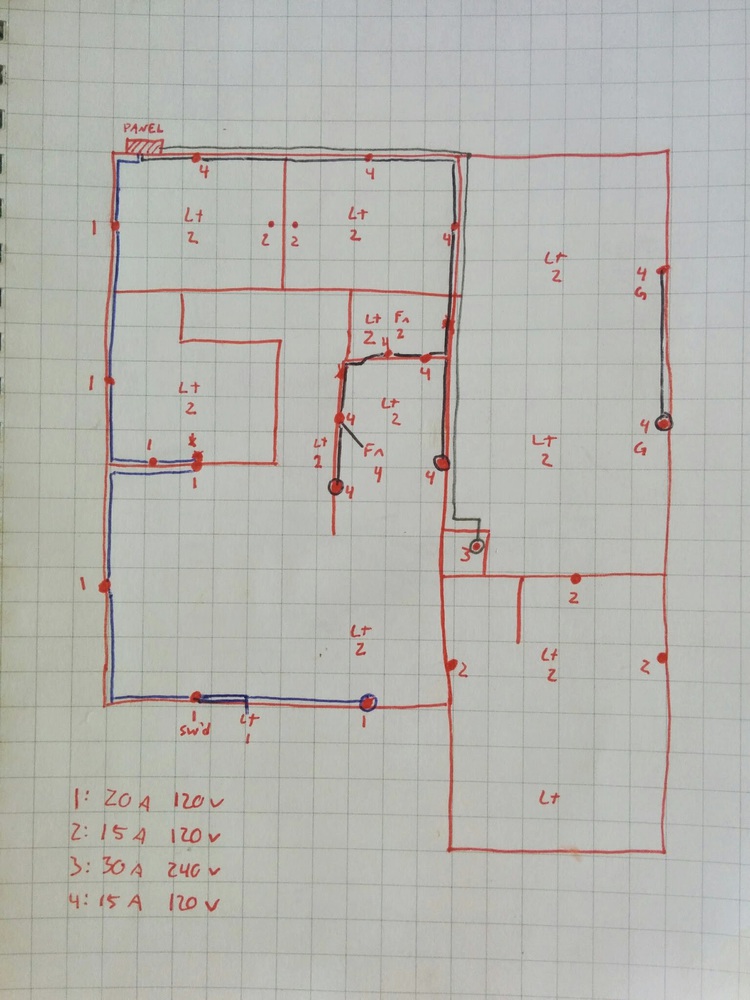 PANEL
4
4
1
Lt
2
2
2
Lt
2
4
Lt
2
4
G
Lt
2
Fn
2
4
4
1
Lt
2
Lt
2
4
4
G
Lt
2
Fn
4
Lt
2
1
1
4
4
3
1
2
Lt
2
Lt
2
2
2
1
sw'd
Lt
1
1
Lt
1: 20 A 120 v
2: 15 A 120 v
3: 30 A 240 v
4: 15 A 120 v